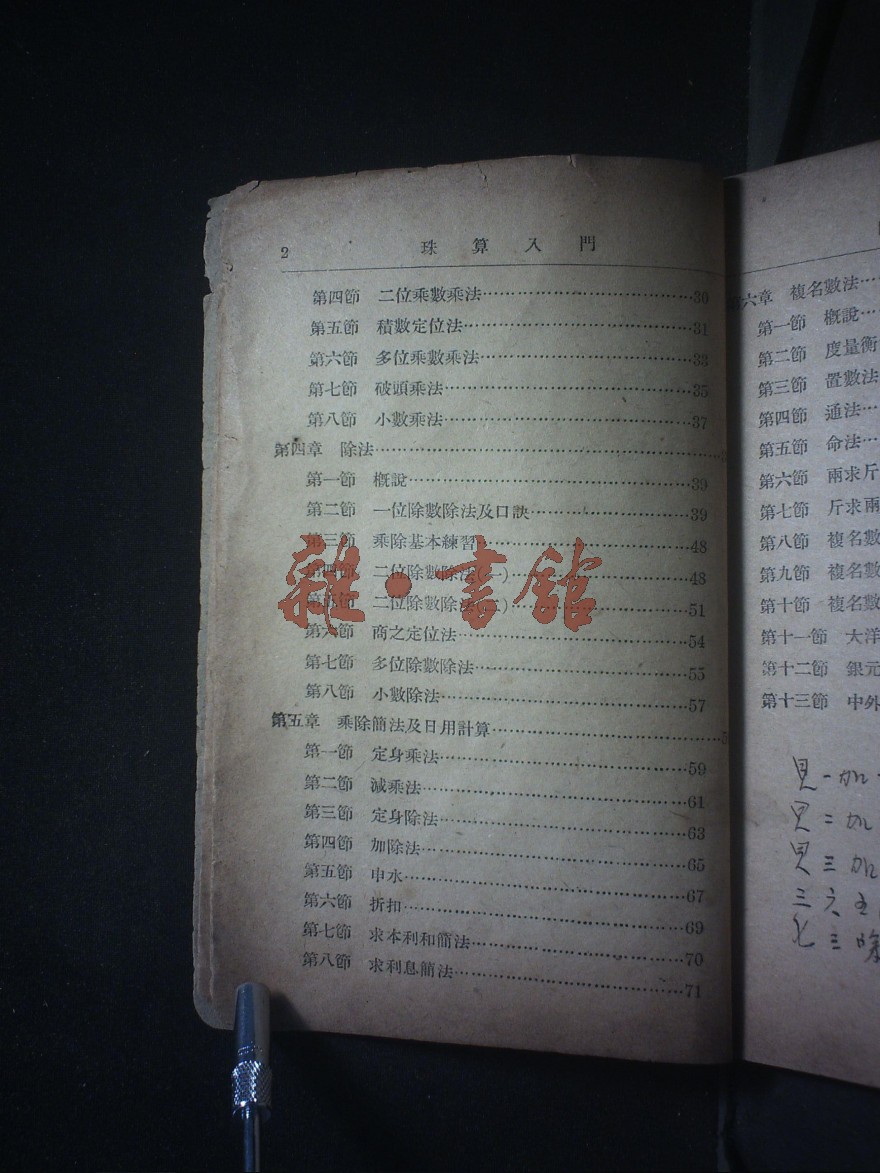 2 珠算入門
第四節 二位乘數乘法……30
第五節 積數定位法……31
第六節 多位乘數乘法……33
第七節 破頭乘法……35
第八節 小數乘法……37
第四章 除法……
第一節 概說……39
第二節 一位除數除法及口訣……39
第三節 乘除基本練習……48
第四節 二位除數除法(一)……48
第五節 二位除數除法(二)……51
第六節 商之定位法……54
第七節 多位除數除法……55
第八節 小數除法……57
第五章 乘除簡法及日用計算……
第一節 定身乘法……59
第二節 減乘法……61
第三節 定身除法……63
第四節 加除法……65
第五節 申水……67
第六節 折扣……69
第七節 求本利和簡法……70
第八節 求利息簡法……71
雜·書館
六章 複名數法……
第一節 概說……
第二節 度量衡
第三節 置數法
第四節 通法……
第五節 命法……
第六節 兩求斤
第七節 斤求兩
第八節 複名數
第九節 複名數
第十節 複名數
第十一節 大洋
第十二節 銀元
第十三節 中外
見一加
見二加
見三加
三六五
七三除